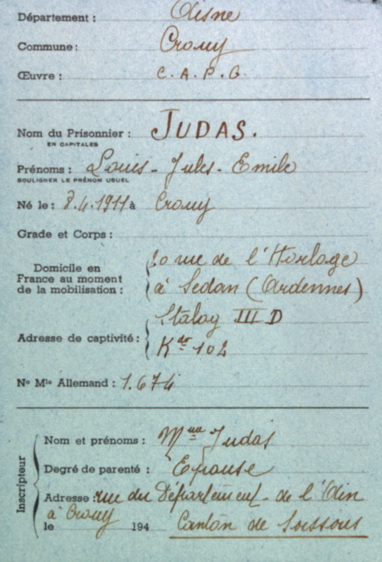 Département : Aisne
Commune : Crouy
Œuvre : C. A. P. G.
Nom du Prisonnier : JUDAS.
EN CAPITALES
Prénoms : Louis - Jules - Emile
SOULIGNER LE PRÉNOM USUEL
Né le : 8.4.1911 à Crouy
Grade et Corps :
Domicile en France au moment de la mobilisation : 10 rue de l'Horloge
à Sedan (Ardennes)
Adresse de captivité : Stalag III D
Kdo 102
No Mle Allemand : 1.674
Inscripteur
Nom et prénoms : Mme Judas
Degré de parenté : Epouse
Adresse : rue du Département - de l'
à Crouy
le 194 Canton de Soissons